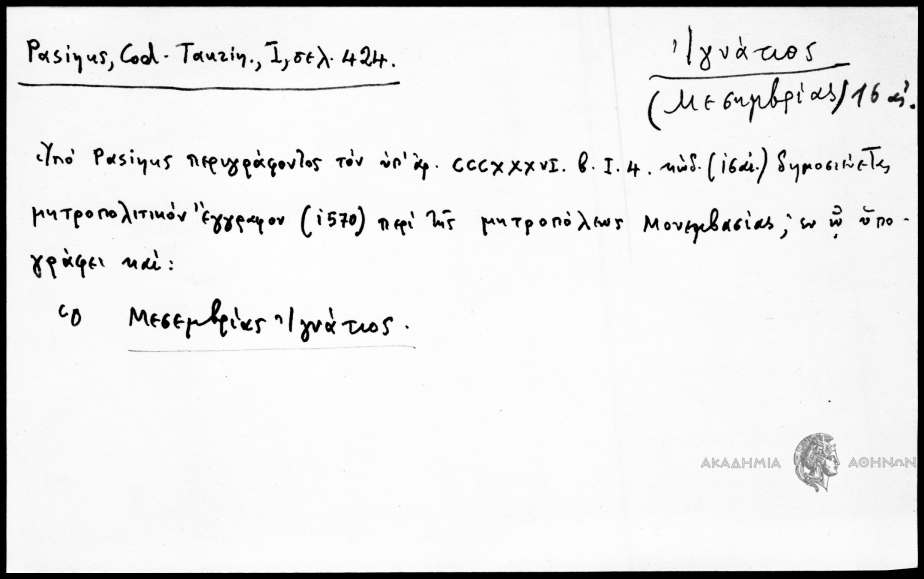 Pasinus, Cod. Taurin., I, σελ. 424.
Ἰγνάτιος
(Μεσημβρίας) 16 αἰ.
Ὑπὸ Pasinus περιγράφοντος τὸν ὑπ' ἀρ. CCCXXXVI. b. I. 4. κώδ. (ις αἰ.) δημοσιεύεται
μητροπολιτικὸν ἔγγραφον (1570) περὶ τῆς μητροπόλεως Μονεμβασίας, ἐν ᾧ ὑπο-
γράφει καὶ:
ὁ Μεσεμβρίας Ἰγνάτιος.
ΑΚΑΔΗΜΙΑ ΑΘΗΝΩΝ